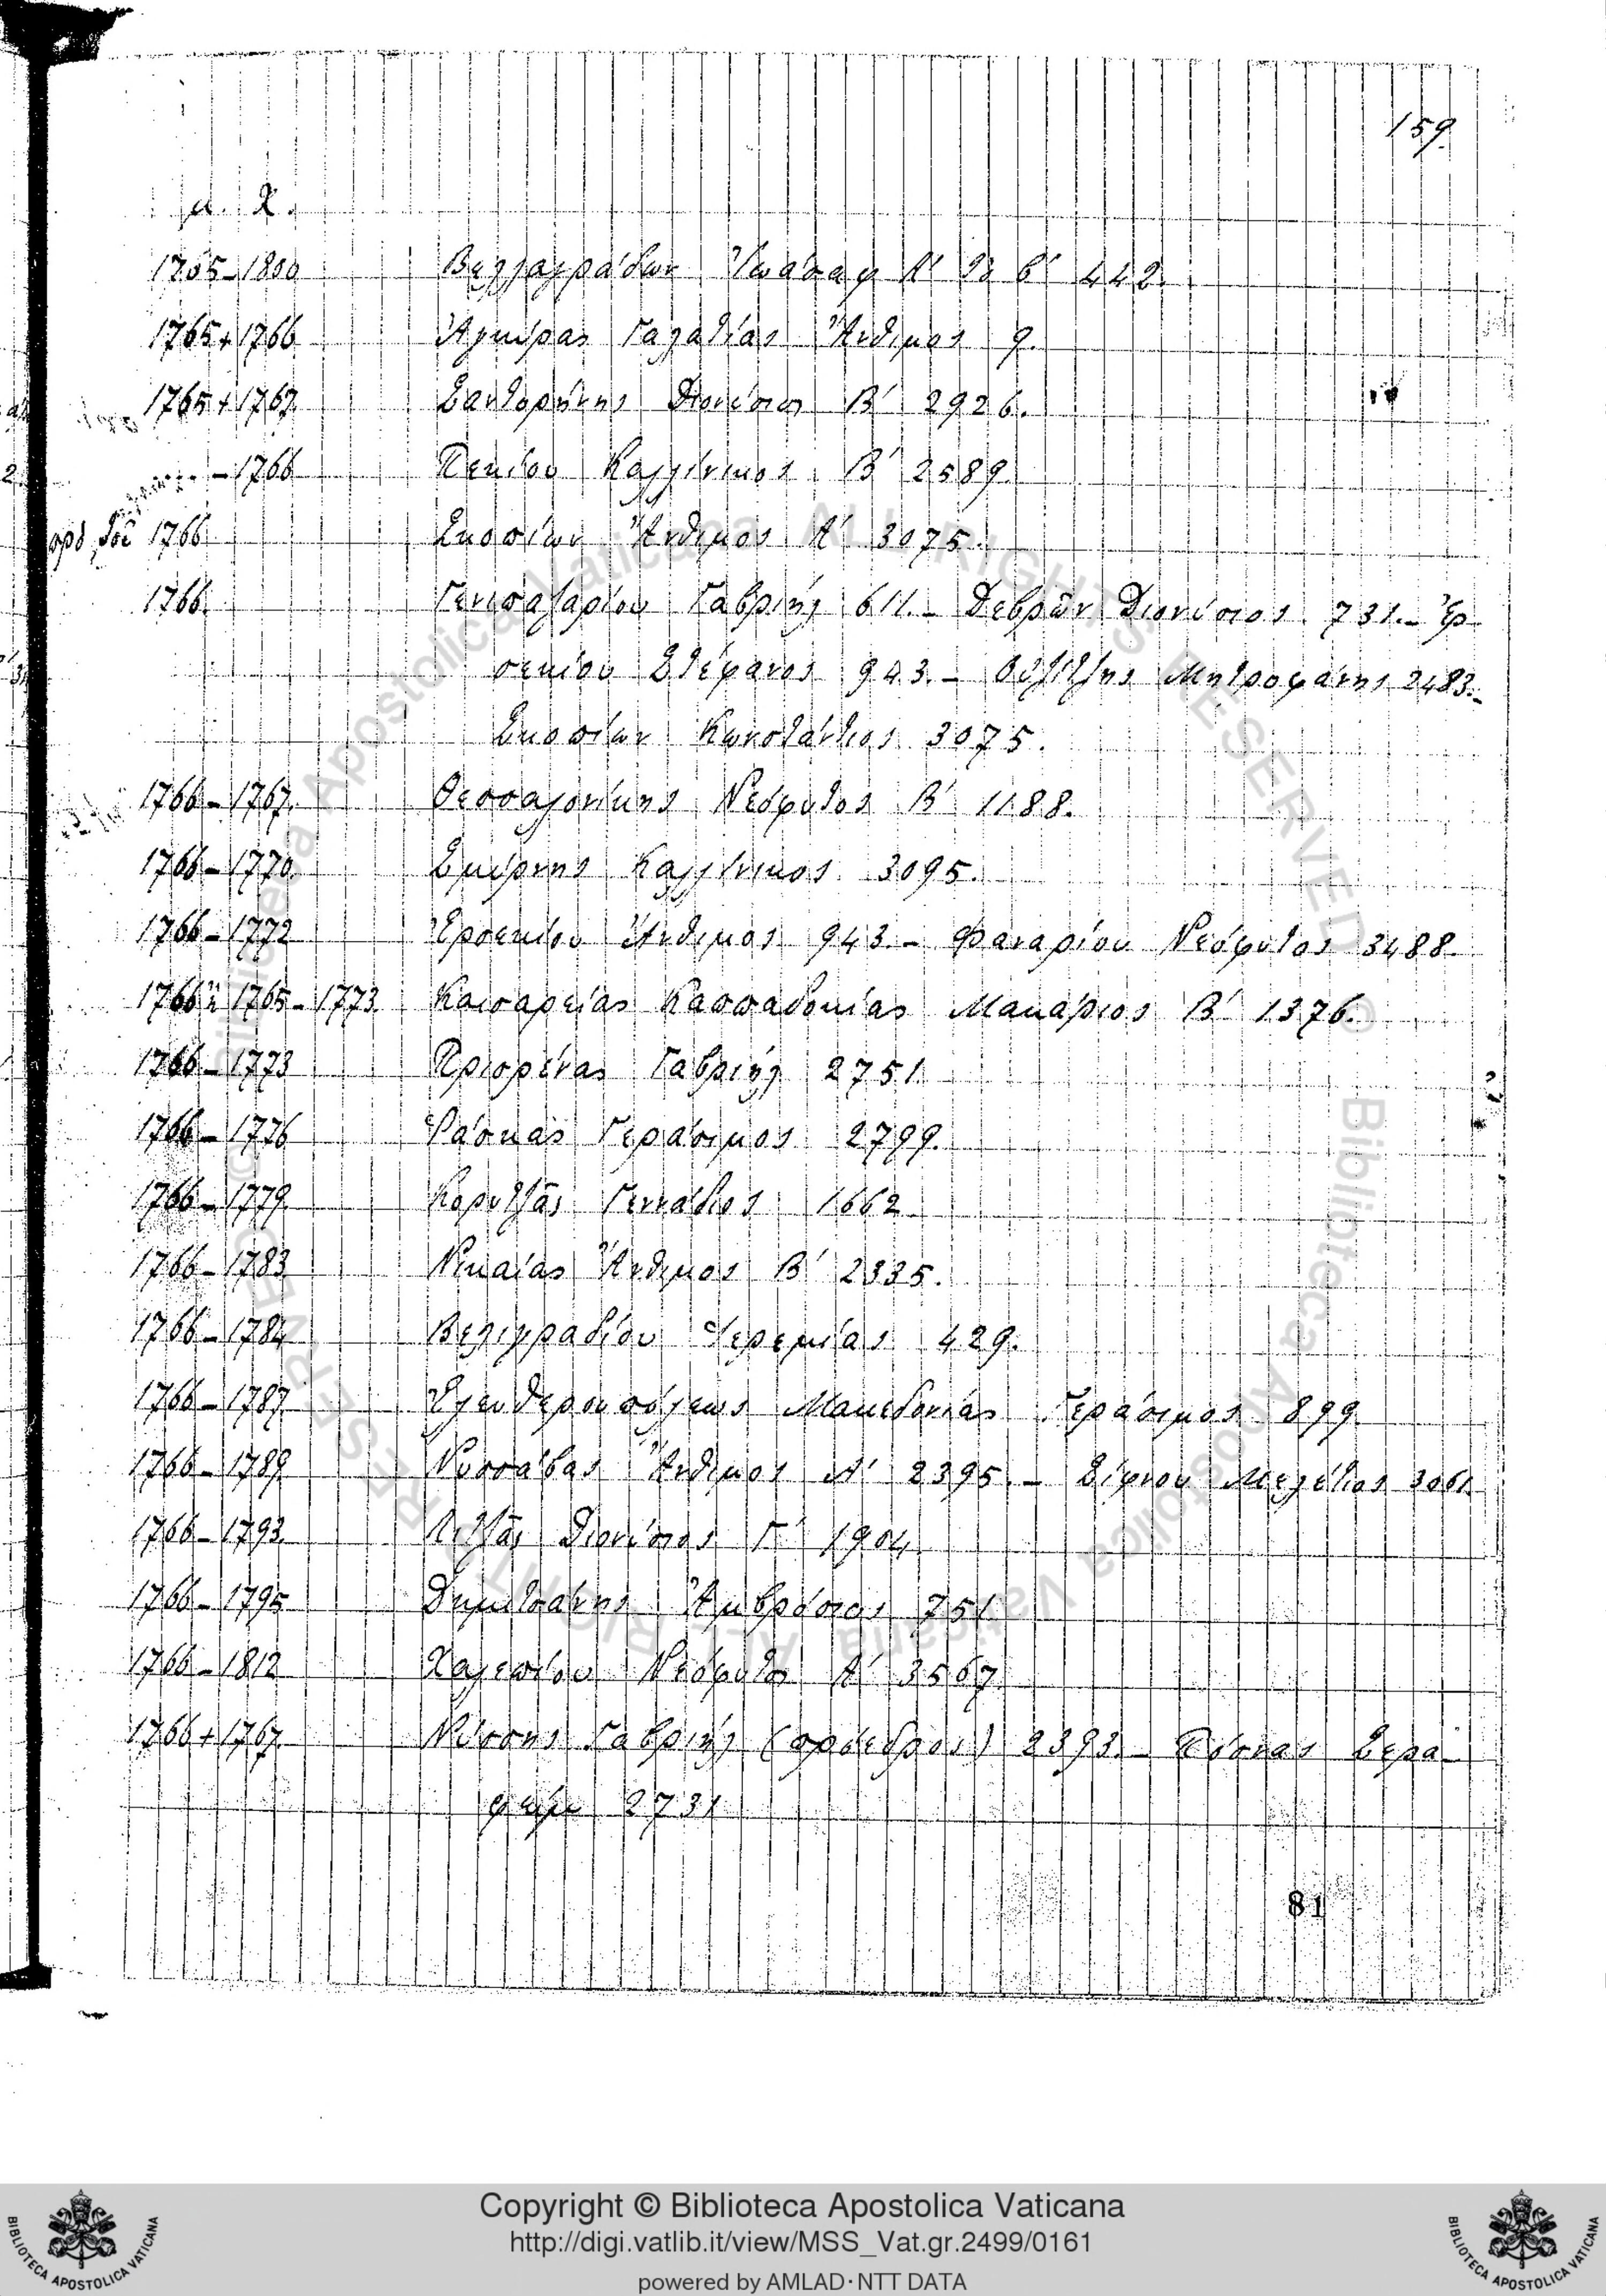 159.
μ. Χ.
1765-1800 Βελλαγράδων Ἰωάσαφ Α΄ 442.
1765+1766 Ἀγκύρας Γαλατίας Ἄνθιμος 9.
1765+1767 Σαντορήνης Διονύσιος Β΄ 2926.
-1766 Πεκίου Καλλίνικος Β΄ 2589.
πρὸ τοῦ 1766 Σκοπίων Ἄνθιμος Α΄ 3075.
1766. Γενισαλαρίου Γαβριήλ 611.- Δεβρῶν Διονύσιος 731.- Ἐρ-
σεκίου Στέφανος 943.- Οὐζίτζης Μητροφάνης 2483.-
Σκοπίων Κωνστάντιος 3075.
1766-1767. Θεσσαλονίκης Νεόφυτος Β΄ 1188.
1766-1770. Σμύρνης Καλλίνικος 3095.
1766-1772 Ἐρσεκίου Ἄνθιμος 943.- Φαναρίου Νεόφυτος 3488.
1766 ἢ 1765-1773 Καισαρείας Καππαδοκίας Μακάριος Β΄ 1376.
1766-1773 Πρισρένας Γαβριήλ 2751.
1766-1776 Ῥάσκας Γεράσιμος 2799.
1766-1779. Κορυτζᾶς Γεννάδιος 1662
1766-1783 Νικαίας Ἄνθιμος Β΄ 2335.
1766-1784 Βελιγραδίου Ἱερεμίας 429.
1766-1787 Ἐλευθερουπόλεως Μακεδονίας Γεράσιμος 899.
1766-1789 Νύσσαβας Ἄνθιμος Α΄ 2395.- Σίφνου Μελέτιος 3061.
1766-1793 Λιτζᾶς Διονύσιος Γ΄ 1904.
1766-1795 Δημητσάνης Ἀμβρόσιος 751
1766-1812 Χαλεπίου Νεόφυτος Α΄ 3567
1766+1767. Νύσσης Γαβριήλ (πρόεδρος) 2393.- Σερα-
φείμ 2731
81
Copyright © Biblioteca Apostolica Vaticana
http://digi.vatlib.it/view/MSS_Vat.gr.2499/0161
powered by AMLAD·NTT DATA